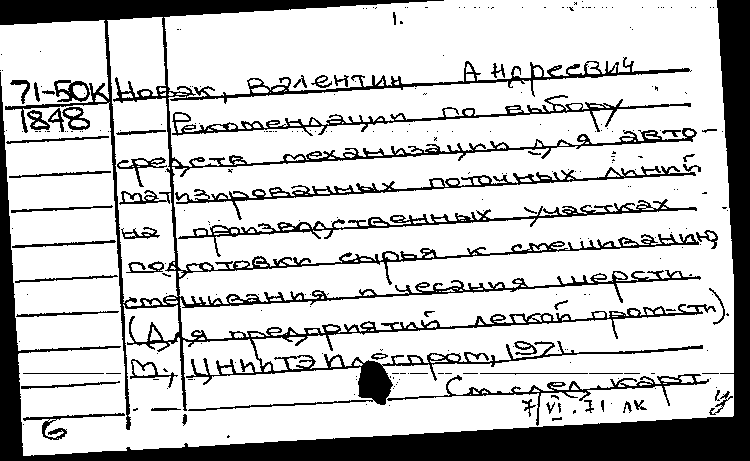 1.
71-50К Новак, Валентин Андреевич
1848 Рекомендации по выбору
средств механизации для авто-
матизированных поточных линий
на производственных участках
подготовки сырья к смешиванию,
смешивания и чесания шерсти.
(Для предприятий легкой пром-сти).
М., ЦНИИТЭИлегпром, 1971.
См. след. карт
7/VI.71 лк
у
6